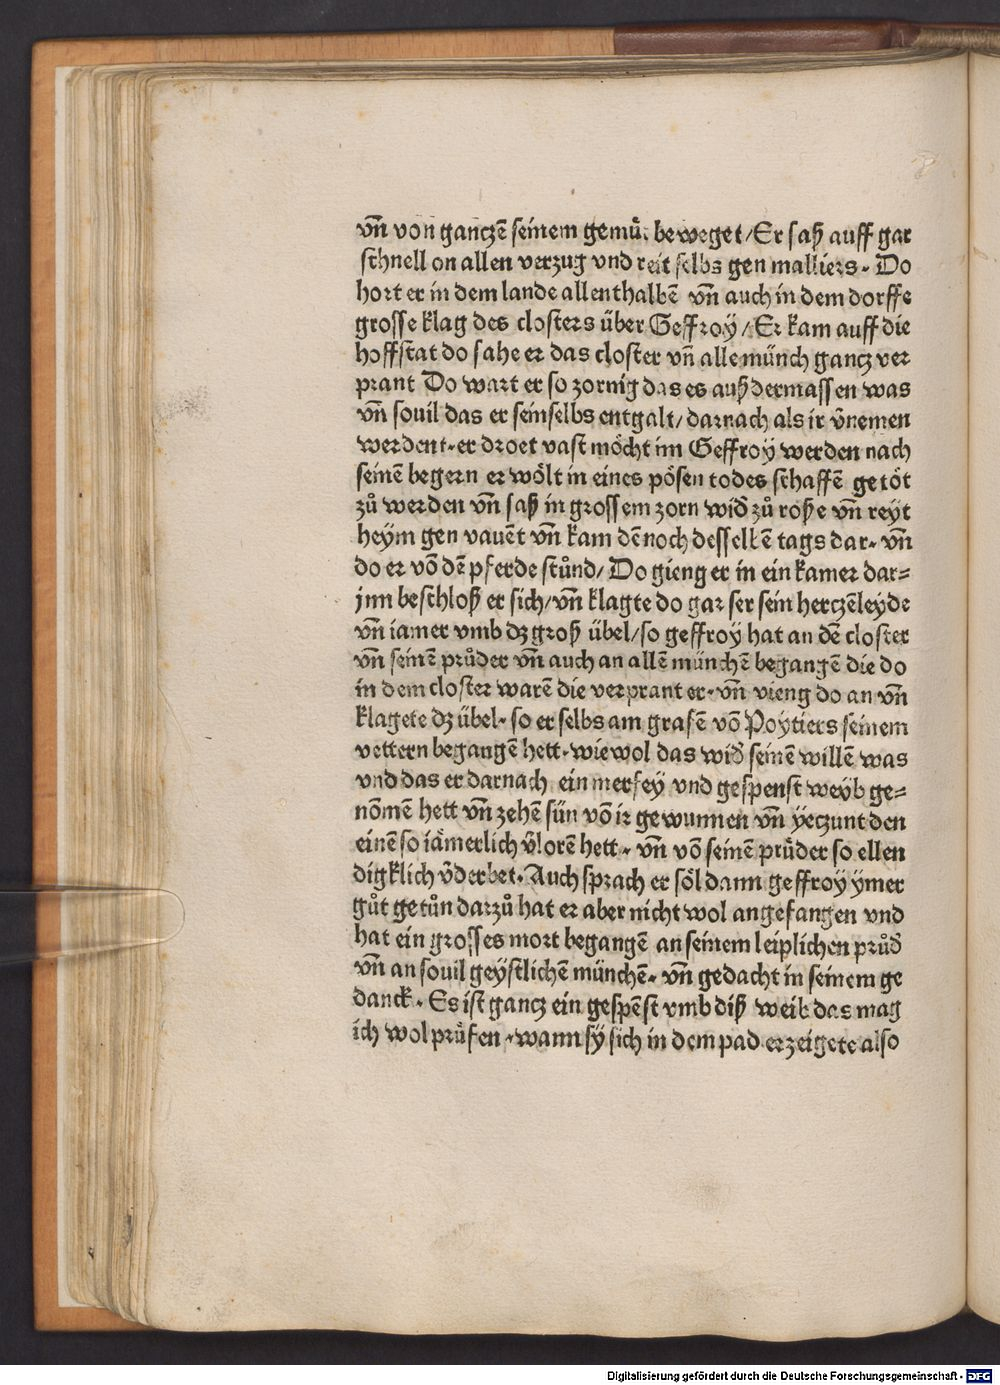 vn̄ von ganczē seinem gemuͤt beweget/Er saß auff gar
schnell on allen verzug vnd reit selbs gen malliers. Do
hort er in dem lande allenthalbē vn̄ auch in dem dorffe
grosse klag des closters über Geffroy/Er kam auff die
hoffstat do sahe er das closter vn̄ alle münch gancz ver
prant Do wart er so zornig das es auß dermassen was
vn̄ souil das er seinselbs entgalt/darnach als ir v̄nemen
werdent. er droet vast möcht im Geffroy werden nach
seinē begern er wölt in eines pösen todes schaffē getöt
zů werden vn̄ saß in grossem zorn wid̄ zů roße vn̄ reyt
heym gen vauēt vn̄ kam dēnoch desselbē tags dar. vn̄
do er vō dē pferde stůnd/ Do gieng er in ein kamer dar=
jnn beschloß er sich/vn̄ klagte do gar ser sein herczēleyde
vn̄ iamer vmb dz groß übel/so geffroy hat an dē closter
vn̄ seinē průder vn̄ auch an allē münchē begangē die do
in dem closter warē die verprant er. vn̄ vieng do an vn̄
klagete dz übel. so er selbs am grafē vō Poytiers seinem
vettern begangē hett. wiewol das wid̄ seinē willē was
vnd das er darnach ein merfey vnd gespenst weyb ge=
nōmē hett vn̄ zehē sün vō ir gewunnen vn̄ yeczunt den
einē so iämerlich v̄lorē hett. vn̄ vō seinē průder so ellen
digklich v̄derbet. Auch sprach er söl dann geffroy ymer
gůt getůn darzů hat er aber nicht wol angefangen vnd
hat ein grosses mort begangē an seinem leiplichen průd̄
vn̄ an souil geystlichē münchē. vn̄ gedacht in seinem ge
danck. Es ist gancz ein gespēst vmb diß weib das mag
ich wol prüfen. wann sy sich in dem pad erzeigete also
Digitalisierung gefördert durch die Deutsche Forschungsgemeinschaft - DFG